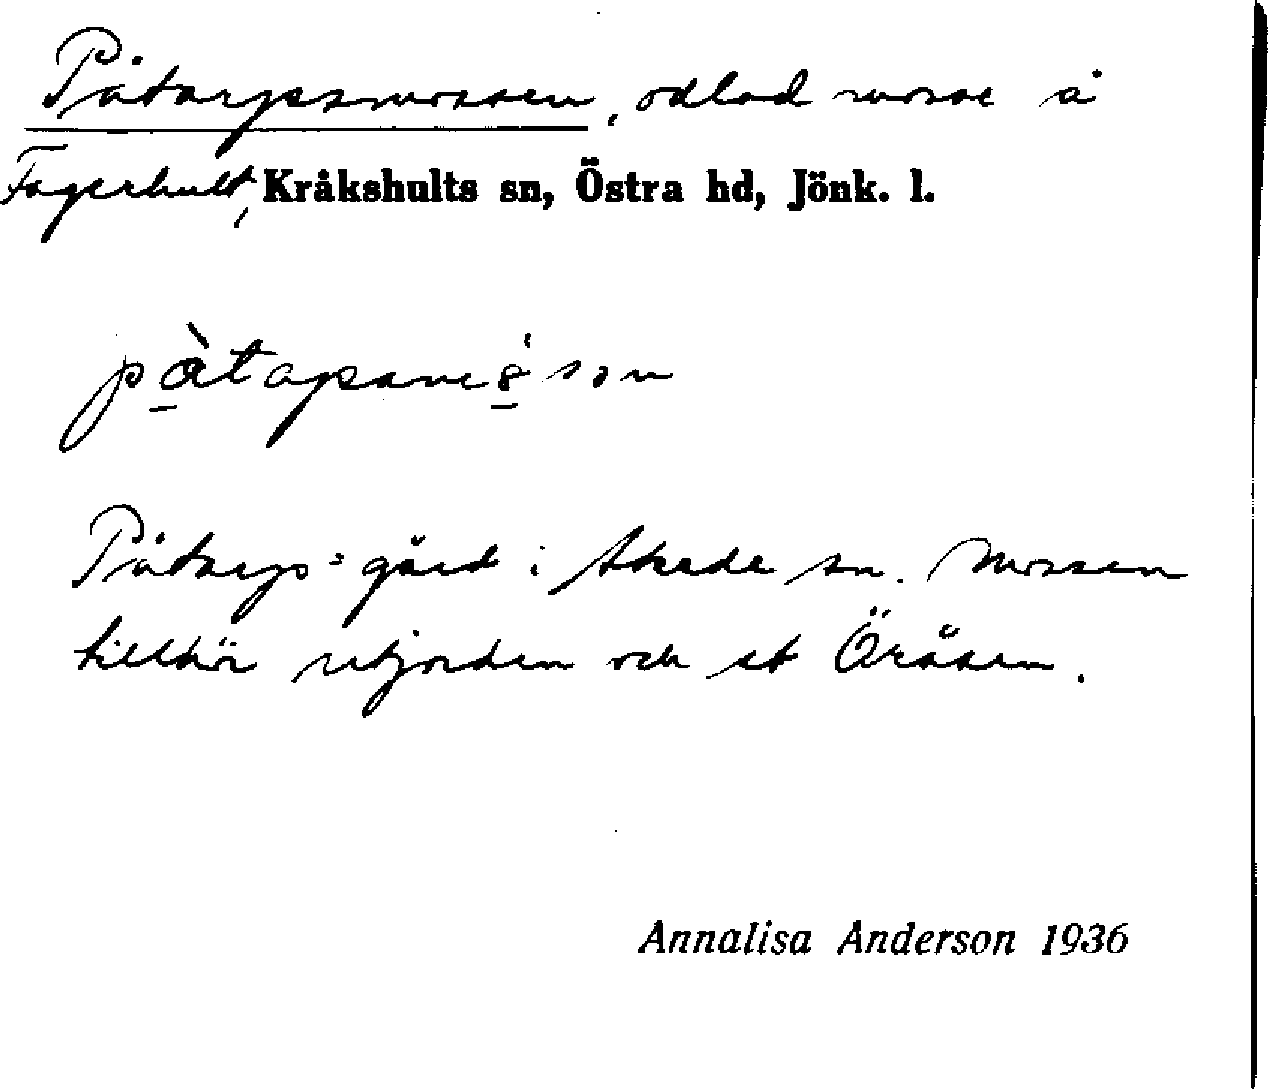 Påtarpsmossen, odlad mosse å
Fagerhult, Kråkshults sn, Östra hd, Jönk. l.
Påtarp = gård i Skede sn. Mossen
tillhör utjorden och ej Öråsen.
Annalisa Anderson 1936